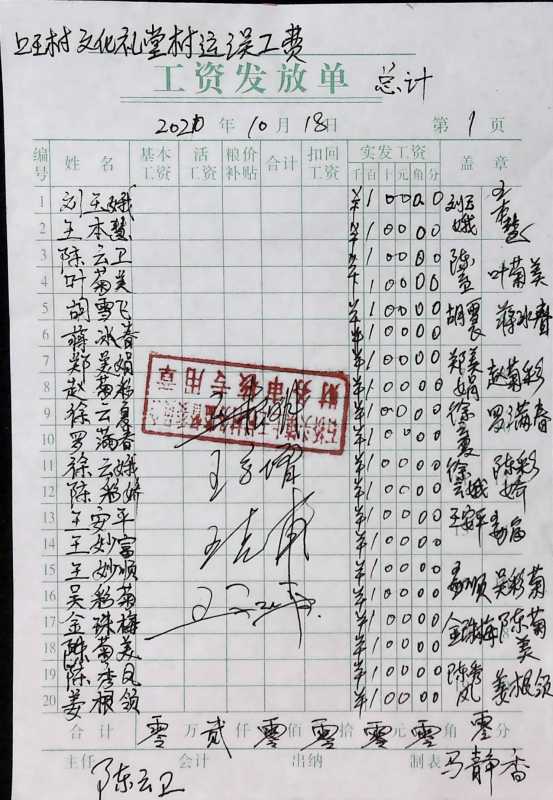 上王村文化礼堂村运误工费
工资发放单 总计
2020 年 10 月 18 日 第 1 页
编号 姓名 基本工资 活工资 粮价补贴 合计 扣回工资 实发工资 盖章
千 百 十 元 角 分
1 刘云娥 ¥ 1 0 0 0 0 刘云娥
2 王本慧 ¥ 1 0 0 0 0 王本慧
3 陈云卫 ¥ 1 0 0 0 0
4 叶菊美 ¥ 1 0 0 0 0 叶菊美
5 胡雪飞 ¥ 1 0 0 0 0
6 蒋冰春 ¥ 1 0 0 0 0 蒋冰春
7 郑美娟 ¥ 1 0 0 0 0 郑美娟
8 赵菊彩 ¥ 1 0 0 0 0 赵菊彩
9 徐云夏 ¥ 1 0 0 0 0
10 罗满春 ¥ 1 0 0 0 0 罗满春
11 徐云娥 ¥ 1 0 0 0 0 徐云娥
12 陈彩娇 ¥ 1 0 0 0 0 陈彩娇
13 王安平 ¥ 1 0 0 0 0 王安平
14 王妙富 ¥ 1 0 0 0 0
15 王妙顺 ¥ 1 0 0 0 0
16 吴彩菊 ¥ 1 0 0 0 0 吴彩菊
17 金珠梅 ¥ 1 0 0 0 0 金珠梅
18 陈菊美 ¥ 1 0 0 0 0 陈菊美
19 陈秀凤 ¥ 1 0 0 0 0 陈秀凤
20 姜根领 ¥ 1 0 0 0 0 姜根领
财务审核专用章
合计 零 万 贰 仟 零 佰 零 拾 零 元 零 角 零 分
主任 会计 出纳 制表
陈云卫 马静香